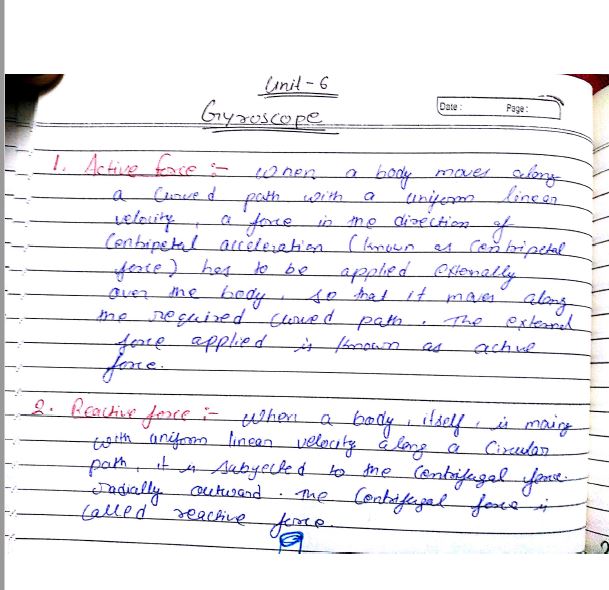 Unit - 6
Gyroscope
Date : Page :
1. Active force :- When a body moves along
a curved path with a uniform linear
velocity, a force in the direction of
Centripetal acceleration (known as centripetal
force) has to be applied externally
over the body, so that it moves along
the required curved path. The external
force applied is known as active
force.
2. Reactive force :- When a body, itself, is moving
with uniform linear velocity along a circular
path, it is subjected to the Centrifugal force
radially outward. The Centrifugal force is
called reactive force.